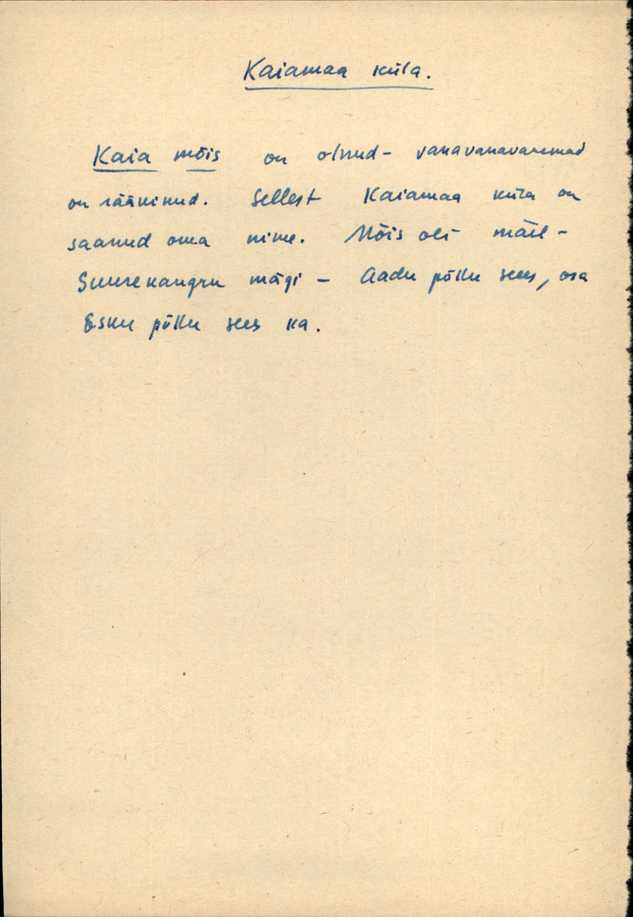 Kaiamaa küla.
Kaia mõis on olnud - vanavanavaremad
on rääkinud. Sellest Kaiamaa küla on
saanud oma nime. Mõis oli mäel -
Suurekangru mägi - Aadu põllu sees, osa
Esku põllu sees ka.